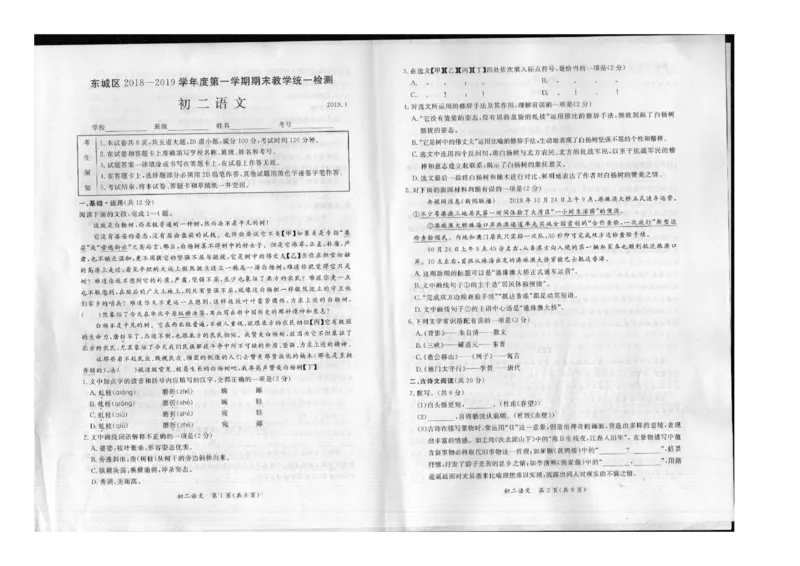 东城区 2018—2019 学年度第一学期期末教学统一检测
初二语文
2019.1
学校 班级 姓名 考号
考生须知
1.本试卷共8页,共五道大题,20道小题,满分100分,考试时间120分钟。
2.在试卷和答题卡上准确填写学校名称、班级、姓名和考号。
3.试题答案一律填涂或书写在答题卡上,在试卷上作答无效。
4.在答题卡上,选择题部分必须用2B铅笔作答,其他试题用黑色字迹签字笔作答。
5.考试结束,将本试卷、答题卡和草稿纸一并交回。
一、基础·运用(共12分)
阅读下面的文段,完成1—4题。
这就是白杨树,西北极普通的一种树,然而决不是平凡的树!
它没有婆娑的姿态,没有屈曲盘旋的虬枝。也许你要说它不美【甲】如果美是专指“婆
娑”或“旁逸斜出”之类而言,那么,白杨树算不得树中的好女子。但是它伟岸,正直,朴质,严
肃,也不缺乏温和,更不用提它的坚强不屈与挺拔,它是树中的伟丈夫【乙】当你在积雪初融
的高原上走过,看见平坦的大地上傲然挺立这么一株或一排白杨树,难道你就觉得它只是
树?难道你就不想到它的朴质,严肃,坚强不屈,至少也象征了北方的农民?难道你竟一点
也不联想到,在敌后的广大土地上,到处有坚强不屈,就像这白杨树一样傲然挺立的守卫他
们家乡的哨兵?难道你又不更远一点想到,这样枝枝叶叶靠紧团结,力求上进的白杨树,
( )然象征了今天在华北平原纵横决荡,用血写出新中国历史的那种精神和意志?
白杨不是平凡的树。它在西北极普遍,不被人重视,就跟北方的农民相似【丙】它有极强
的生命力,磨折不了,压迫不倒,也跟北方的农民相似。我赞美白杨树,就因为它不但象征了
北方的农民,尤其象征了今天我们民族解放斗争中所不可缺的朴质,坚强,力求上进的精神。
让那些看不起民众,贱视民众,顽固的倒退的人们去赞美那贵族化的楠木(那也是直挺
秀颀的),去( )视这极常见,极易生长的白杨树吧,我要高声赞美白杨树【丁】
1.文中加点字的读音和括号内应填写的汉字,全都正确的一项是(2分)
A.虬枝(qióng) 磨折(zhé) 婉 鄙
B.虬枝(qióng) 磨折(shé) 婉 轻
C.虬枝(qiú) 磨折(shé) 宛 轻
D.虬枝(qiú) 磨折(zhé) 宛 鄙
2.文中画线词语解释不正确的一项是(2分)
A.婆娑:枝叶低垂,形容姿态优美。
B.旁逸斜出:指(树枝)从树干的旁边斜伸出来。
C.纵横决荡:纵横驰骋,冲杀突击。
D.秀颀:美而高。
初二语文 第1页(共8页)
3.在选文【甲】【乙】【丙】【丁】四处依次填入标点符号,最恰当的一项是(2分)
4.对选文所运用的修辞手法及其作用,理解有误的一项是(2分)
A.“它没有婆娑的姿态,没有屈曲盘旋的虬枝”运用排比的修辞手法,细致刻画了白杨树
颀拔的姿态。
B.“它是树中的伟丈夫”运用比喻的修辞手法,生动地表现了白杨树坚强不屈的个性和精神。
C.选文中连用四个反问句,将白杨树与北方农民、北方的抗战军民,以至于抗战军民的精
神和意志建立起联系,揭示了白杨树的象征意义。
D.选文最后一段将白杨树和楠木进行对比,鲜明地表达了作者对白杨树的赞美之情。
5.对下面的新闻材料判断有误的一项是(2分)
央视网消息(新闻联播) 2018年10月24日上午9点,港珠澳大桥正式通车运营。
①不少粤港澳三地居民第一时间体验了大湾区“一小时生活圈”的便捷。
②港珠澳大桥珠海口岸珠澳通道率先实施全国首创的“合作查验、一次放行”新型边
检查验模式。内地和澳门居民只需排一次队,30秒即可完成双方边检查验手续。
10月24日上午9点43分左右,从香港方向入境的第一辆私家车也顺利抵达港澳口
岸。10点左右,首批从珠海出发的港珠澳大桥穿梭巴士抵达香港。
A.这则新闻的标题可以是“港珠澳大桥正式通车运营”。
B.文中画线句子①的主干是“居民体验便捷”。
C.“完成双方边检查验手续”“抵达香港”都是动宾短语。
D.文中画线句子②的主语中心语是“港珠澳大桥”。
6.下列文学常识搭配有误的一项是(2分)
A.《背影》——朱自清——散文
B.《三峡》——郦道元——东晋
C.《愚公移山》——《列子》——寓言
D.《雁门太守行》——李贺——唐代
二、古诗文阅读(共20分)
7.默写。(共6分)
(1)白头搔更短, 。(杜甫《春望》)
(2) ,自将磨洗认前朝。(杜牧《赤壁》)
初二语文 第2页(共8页)